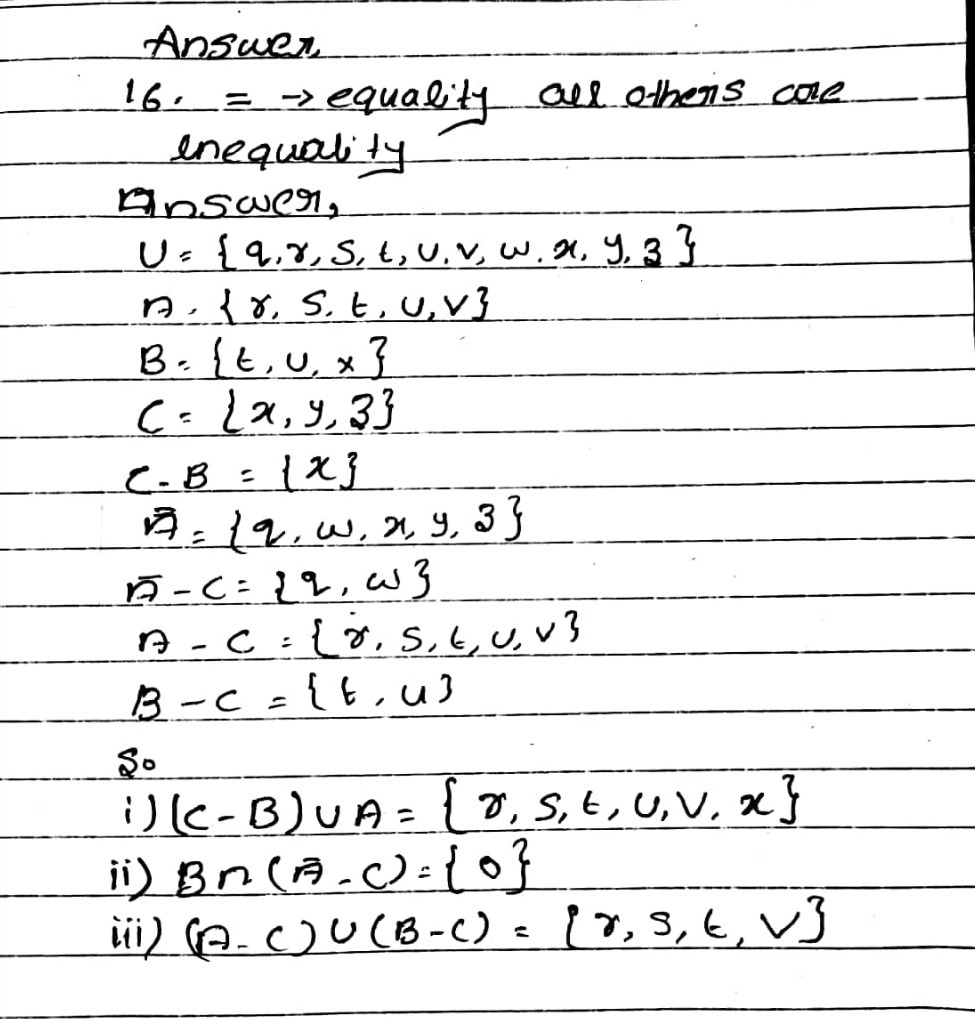 Answer
16. = → equality all others are
inequality
Answer,
U = {q, r, s, t, u, v, w, x, y, z}
A = {r, s, t, u, v}
B = {t, u, x}
C = {x, y, z}
C - B = {x}
Ā = {q, w, x, y, z}
Ā - C = {q, w}
A - C = {r, s, t, u, v}
B - C = {t, u}
So
i) (C - B) ∪ A = {r, s, t, u, v, x}
ii) B ∩ (Ā - C) = {0}
iii) (A - C) ∪ (B - C) = {r, s, t, v}